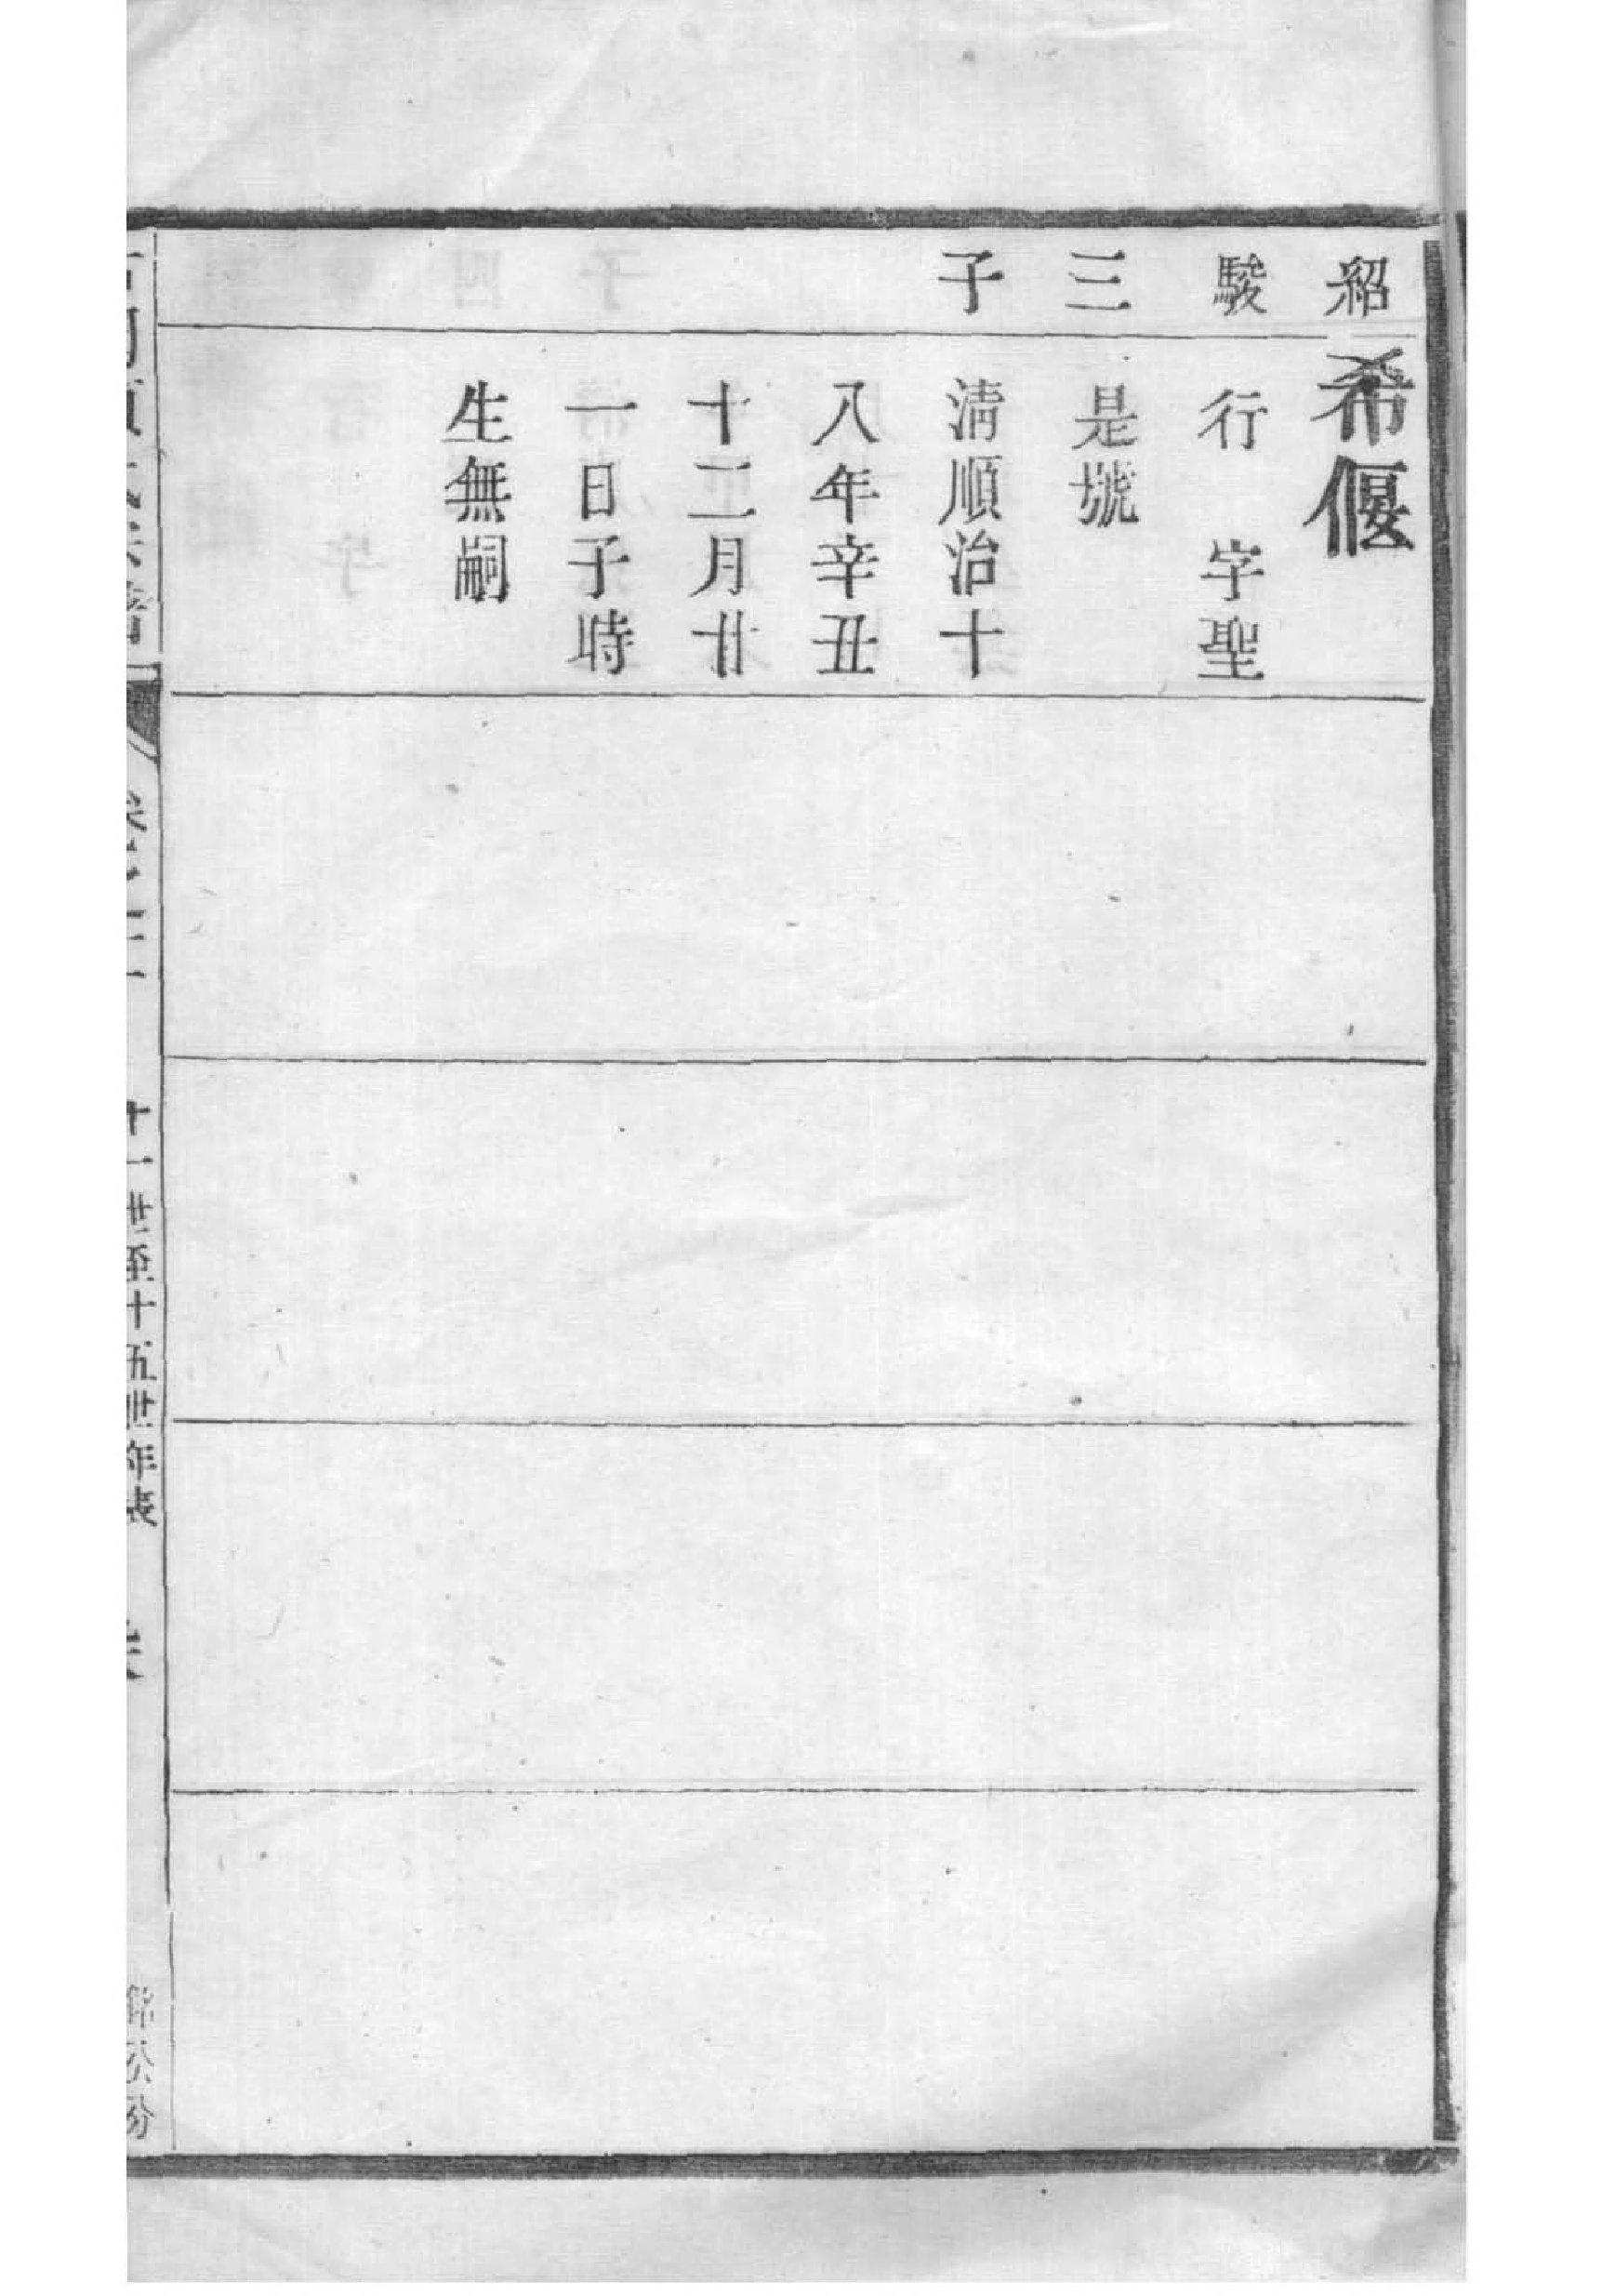 紹
駿
三
子
希偃
行　字聖
是號
清順治十
八年辛丑
十二月廿
一日子時
生無嗣
十一世至十五世年表